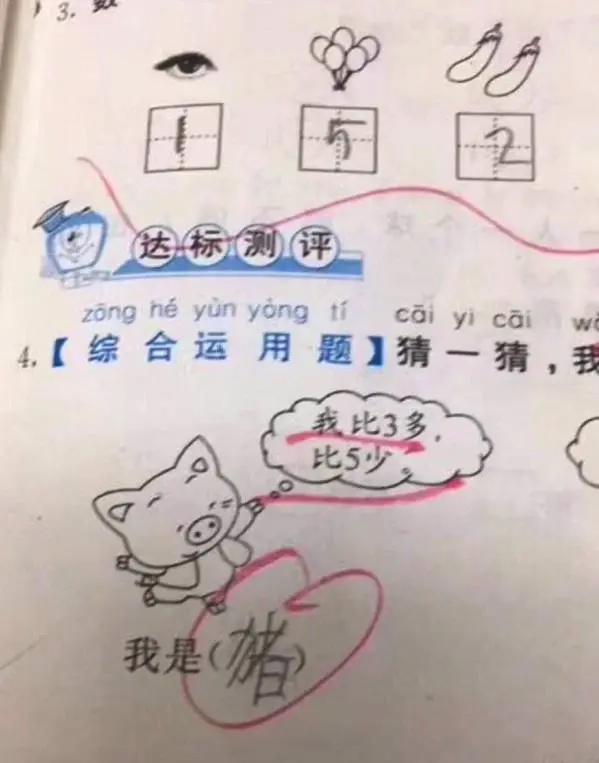 3. 数
1 5 2
达标测评
zōng hé yùn yòng tí cāi yi cāi
4.【综合运用题】猜一猜，我
我比3多，
比5少。
我是(猪)